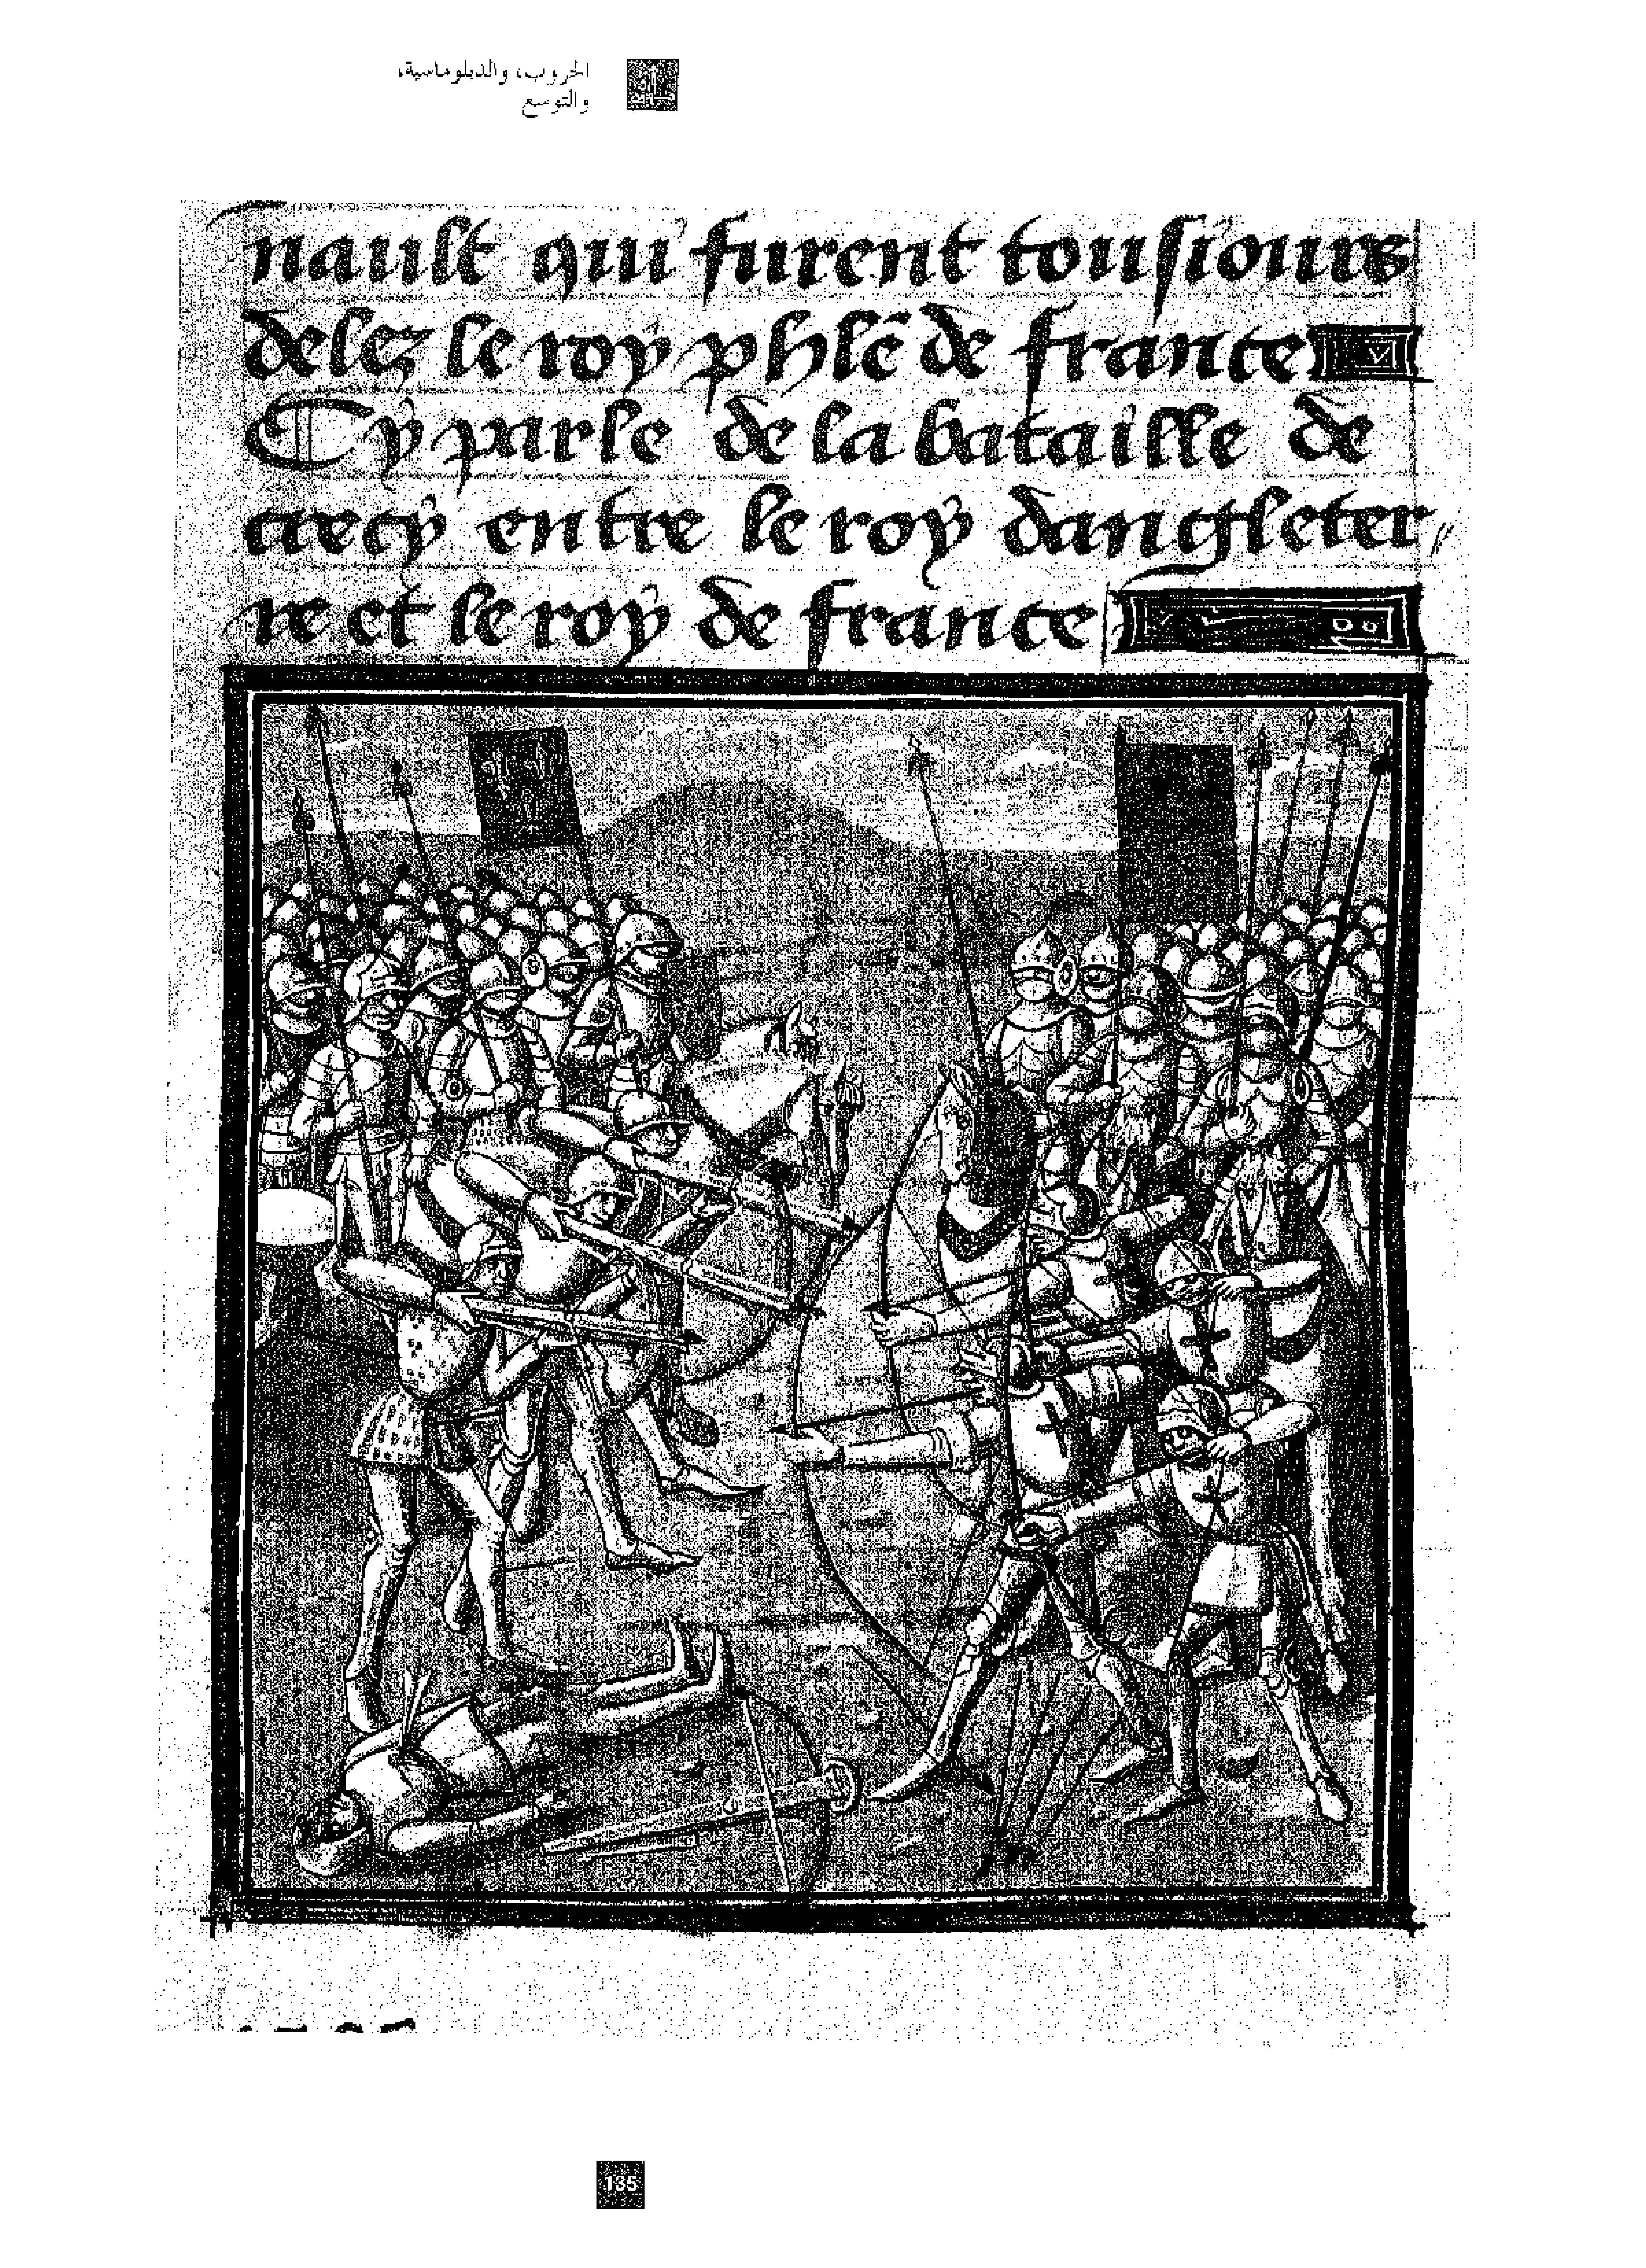 الحروب، والدبلوماسية،
والتوسع
nault qui furent tousiours
delez le roy phle de france
Cy parle de la bataille de
crecy entre le roy dangleter
re et le roy de france
135